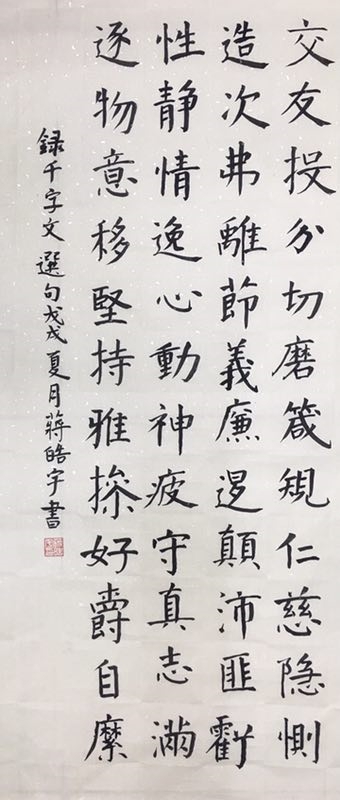 交友投分切磨箴規仁慈隐惻
造次弗離節義廉退顛沛匪虧
性静情逸心動神疲守真志滿
逐物意移堅持雅操好爵自縻
録千字文選句戊戌夏月蔣皓宇書